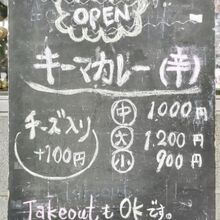 OPEN
キーマカレー(辛)
中 1000円
大 1,200円
小 900円
チーズ入り
+100円
Takeout,も OKです。